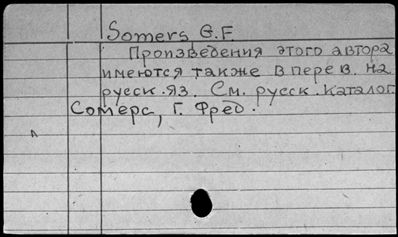 Somers G.F.
Произведения этого автора
имеются также в перев. на
русск. яз. См. русск. каталог
Сомерс, Г. Фред.